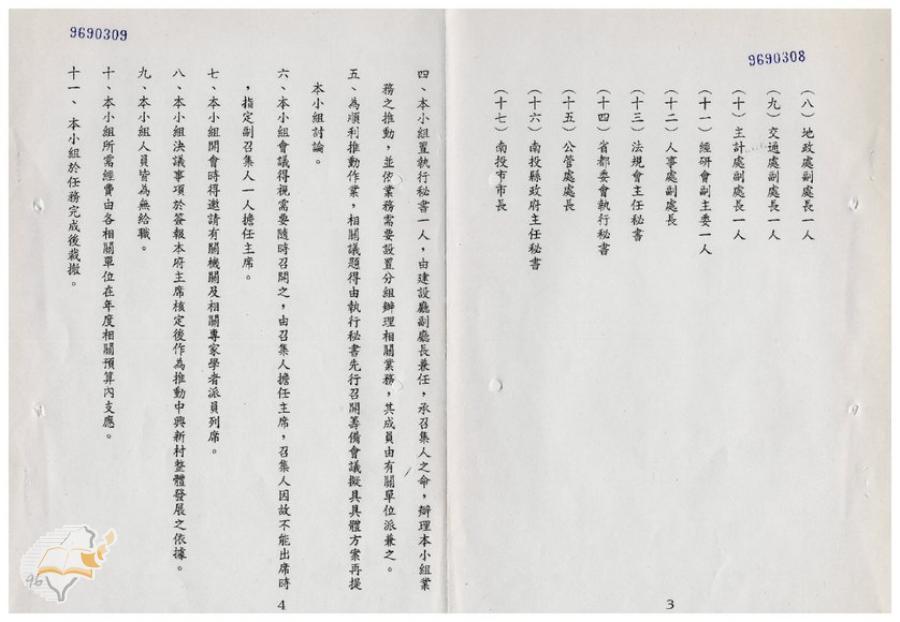 9690308
（八）地政處副處長一人
（九）交通處副處長一人
（十）主計處副處長一人
（十一）經研會副主委一人
（十二）人事處副處長
（十三）法規會主任秘書
（十四）省都委會執行秘書
（十五）公管處處長
（十六）南投縣政府主任秘書
（十七）南投市市長
3
9690309
四、本小組置執行秘書一人，由建設廳副廳長兼任，承召集人之命，辦理本小組業
務之推動，並依業務需要設置分組辦理相關業務，其成員由有關單位派兼之。
五、為順利推動作業，相關議題得由執行秘書先行召開籌備會議擬具具體方案再提
本小組討論。
六、本小組會議得視需要隨時召開之，由召集人擔任主席，召集人因故不能出席時
，指定副召集人一人擔任主席。
七、本小組開會時得邀請有關機關及相關專家學者派員列席。
八、本小組決議事項於簽報本府主席核定後作為推動中興新村整體發展之依據。
九、本小組人員皆為無給職。
十、本小組所需經費由各相關單位在年度相關預算內支應。
十一、本小組於任務完成後裁撤。
4
96